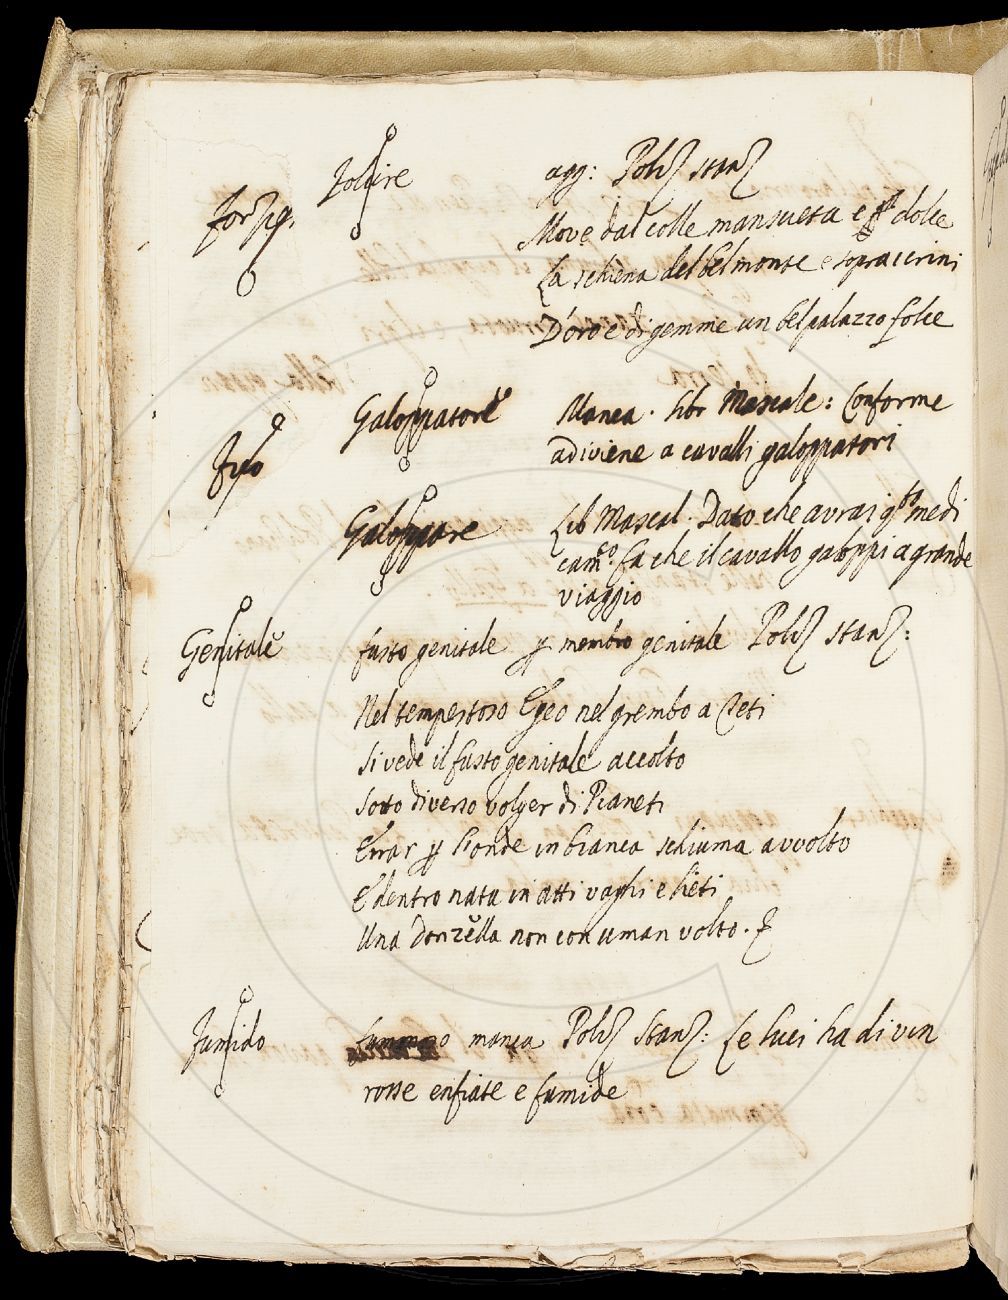 folcire agg: Poliz stanz
Move dal colle mansueta e dolce
La schiena del bel monte e sopra i crini
D'oro e di gemme un bel palazzo folce
Galoppatore Manca. libr Mascale: Conforme
adiviene a cavalli galoppatori
Galoppare Lib Mascal. Dato che avrai q.sto medi
cam.to fa che il cavallo galoppi a grande
viaggio
Genitale fusto genitale p membro genitale Poliz stanz:
Nel tempestoso Egeo nel grembo a Teti
Si vede il fusto genitale accolto
Sotto diverso volger di Pianeti
Errar p l'onde in bianca schiuma avvolto
E dentro nata in atti vaghi e lieti
Una donzella non con uman volto.
Fumido manca Poliz Stanz: Le luci ha di vin
rosse enfiate e fumide